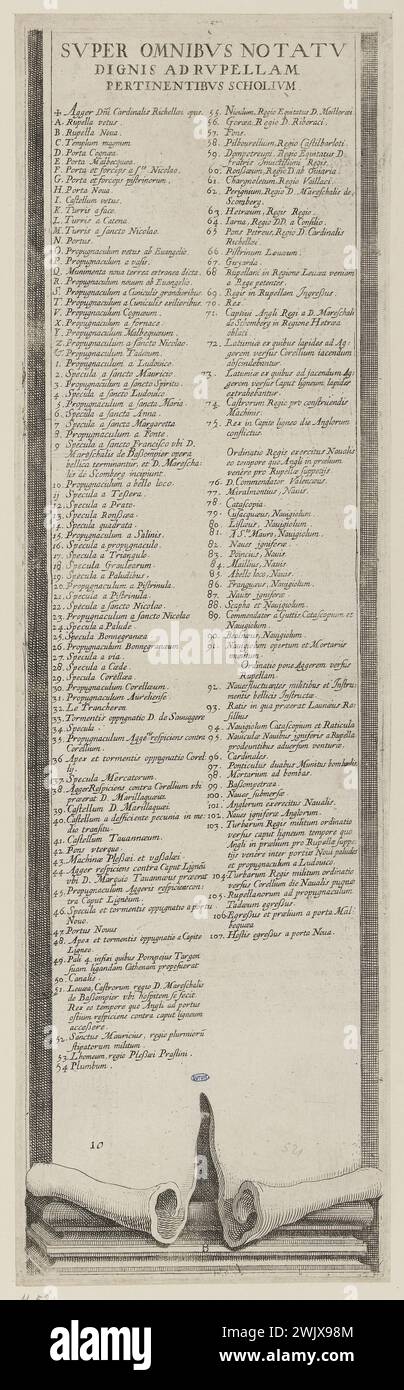 SVPER OMNIBVS NOTATV
DIGNIS AD RVPELLAM
PERTINENTIBVS SCHOLIVM
✠ Agger Dñi Cardinalis Richelloi opus.
A. Rupella vetus.
B. Rupella Noua.
C. Templum magnum
D. Porta Cognac
E. Porta Malbecquea.
F. Porta et forceps a s.to Nicolao.
G. Porta et forceps pistrinorum.
H. Porta Noua.
I. Castellum vetus.
K. Turris a face.
L. Turris a Catena.
M. Turris a sancto Nicolao.
N. Portus.
O. Propugnaculum vetus ab Euangelio.
P. Propugnaculum a valis.
Q. Munimenta noua terrea extronea dicta.
R. Propugnaculum nouum ab Euangelio.
S. Propugnaculum a Cuniculis grandioribus
T. Propugnaculum a Cuniculis exilioribus.
V. Propugnaculum Cognacum.
X. Propugnaculum a fornace.
Y. Propugnaculum Malbequanum.
Z. Propugnaculum a sancto Nicolao.
Propugnaculum Tadonum.
1. Propugnaculum a Ludouico.
2. Specula a sancto Mauricio.
3. Propugnaculum a sancto Spiritu.
4. Specula a sancto Ludouico
5. Propugnaculum a sancta Maria.
6. Specula a sancta Anna.
7. Specula a sancta Margaretta
8. Propugnaculum a Ponte.
9. Specula a sancto Francisco vbi D.
Mareschalis de Bassompier opera
bellica terminantur, et D. Marescha-
lis de Scomberg incipiunt.
10. Propugnaculum a bello loco.
11. Specula a Tessera.
12. Specula a Prato.
13. Specula Ronsæa.
14. Specula quadrata.
15. Propugnaculum a Salinis.
16. Specula a propugnaculo.
17. Specula a Triangulo.
18. Specula Groulearum.
19. Specula a Paludibus.
20. Propugnaculum a Pistrinula.
21. Specula a Pistrinula.
22. Specula a sancto Nicolao.
23. Propugnaculum a sancto Nicolao
24. Specula a Palude.
25. Specula Bonnegranæa
26. Propugnaculum Bonnegranæum
27. Specula a via.
28. Specula a Cæde.
29. Specula Corellæa.
30. Propugnaculum Corellæum.
31. Propugnaculum Aureliense.
32. Le Trancheron
33. Tormentis oppugnatio D. de Sauuagere
34. Specula.
35. Propugnaculum Aggeris respiciens contra
Corellium.
36. Apex et tormentis oppugnatio Corel
lij.
37. Specula Mercatorum.
38. Agger Respiciens contra Corellium vbi
præerat D. Marillaqueus.
39. Castellum D. Marillaquei
40. Castellum a desficiente pecunia in me-
dio transitu.
41. Castellum Tauannæum.
42. Pons vterque.
43. Machinæ Plessæi et vassalæi.
44. Agger respiciens contra Caput Ligneũ
vbi D. Marquis Tauannæus præerat
45. Propugnaculum Aggeris respiciens con-
tra Caput Ligneum.
46. Specula et tormentis oppugnatio a portu
Nouo.
47. Portus Nouus
48. Apex et tormentis oppugnatio a Capite
Ligneo.
49. Pali 4. infixi quibus Pompeius Targon
suam ligandam Cathenam proposuerat
50. Canalis.
51. Louæa, Castrorum regio D. Mareschalis
de Bassompier vbi hospitem se fecit
Rex eo tempore quo Angli ad portus
ostium respiciens contra caput ligneum
accessere.
52. Sanctus Mauricius, regio plurimorũ
stipatorum militum.
53. Lhomeum, regio Plessæi Praslini.
54. Plumbum.
55. Nieulum, Regio Equitatus D. Mottæræi
56. Goræa, Regio D. Riberaci.
57. Pons.
58. Pilbourellum, Regio Castilbarloti.
59. Dompetreum, Regio Equitatus D.
fratris Inuictissimi Regis.
60. Ronsæum, Regio D. ab Ouiaria.
61. Chargnoleum, Regio Vaillaci.
62. Perigneum, Regio D. Mareschalis de
Scomberg.
63. Hetræum, Regis Regio.
64. Iarna, Regio D.D. a Consilio.
65. Pons Petreus, Regio D. Cardinalis
Richelloi
66. Pistrinum Louæum.
67. Guicarda.
68. Rupellani in Regione Louæa veniam
a Rege petentes.
69. Regis in Rupellam Ingressus.
70. Rex.
71. Captiui Angli Regi a D. Mareschali
de Schomberg in Regione Hetræa
oblati.
72. Latumiæ ex quibus lapides ad Ag-
gerem versus Corellium iacendum
abscindebantur.
73. Latumiæ ex quibus ad jacendum Ag-
gerem versus Caput ligneum lapides
extrahebantur.
74. Castrorum Regio pro construendis
Machinis.
75. Rex in Capite ligneo die Anglorum
conflictus.
Ordinatio Regis exercitus Naualis
eo tempore quo Angli in prælium
venêre pro Rupellæ suppetijs.
76. D. Commendator Valencæus.
77. Miralmontius, Nauis.
78. Catascopia.
79. Cusacqueus, Nauigiolum.
80. Lislous, Nauigiolum.
81. A S.to Mauro, Nauigiolum.
82. Naues igniferæ.
83. Poincius, Nauis.
84. Maillius, Nauis.
85. Abello loco, Nauis.
86. Franqueus, Nauigiolum.
87. Nauis igniferæ
88. Scapha et Nauigiolum.
89. Commendator a Guttis Catascopium et
Nauigiolum.
90. Broulius, Nauigiolum.
91. Nauigiolum opertum et Mortarius
Ordinatio pone Aggerem versus
Rupellam.
92. Naues fluctuantes militibus et Instru-
mentis bellicis Instructæ.
93. Ratis in qua præerat Launaius Ra-
sillius
94. Nauigiolum Catascopum et Raticula
95. Nauiculæ Nauibus igniferis a Rupella
prodeuntibus aduersum venturæ.
96. Cardinales.
97. Ponticulus duabus Munitus bombardis
98. Mortarium ad bombas.
99. Bassompetræa.
100. Naues submersæ
101. Anglorum exercitus Naualis.
102. Naues igniferæ Anglorum.
103. Turbarum Regis militum ordinatio
versus caput ligneum tempore quo
Angli in prælium pro Rupellæ suppe-
tijs venere inter portie Noui paludes
et propugnaculum a Ludouico.
104. Turbarum Regis militum ordinatio
versus Corellium die Naualis pugnæ
105. Rupellanorum ad propugnaculum
Tadonum egressus.
106. Egressus et prælium a porta Mal-
bequæa
107. Hostis egressus a porta Noua.
10
521
B
alamy
Image ID: 2WJX98M
www.alamy.com